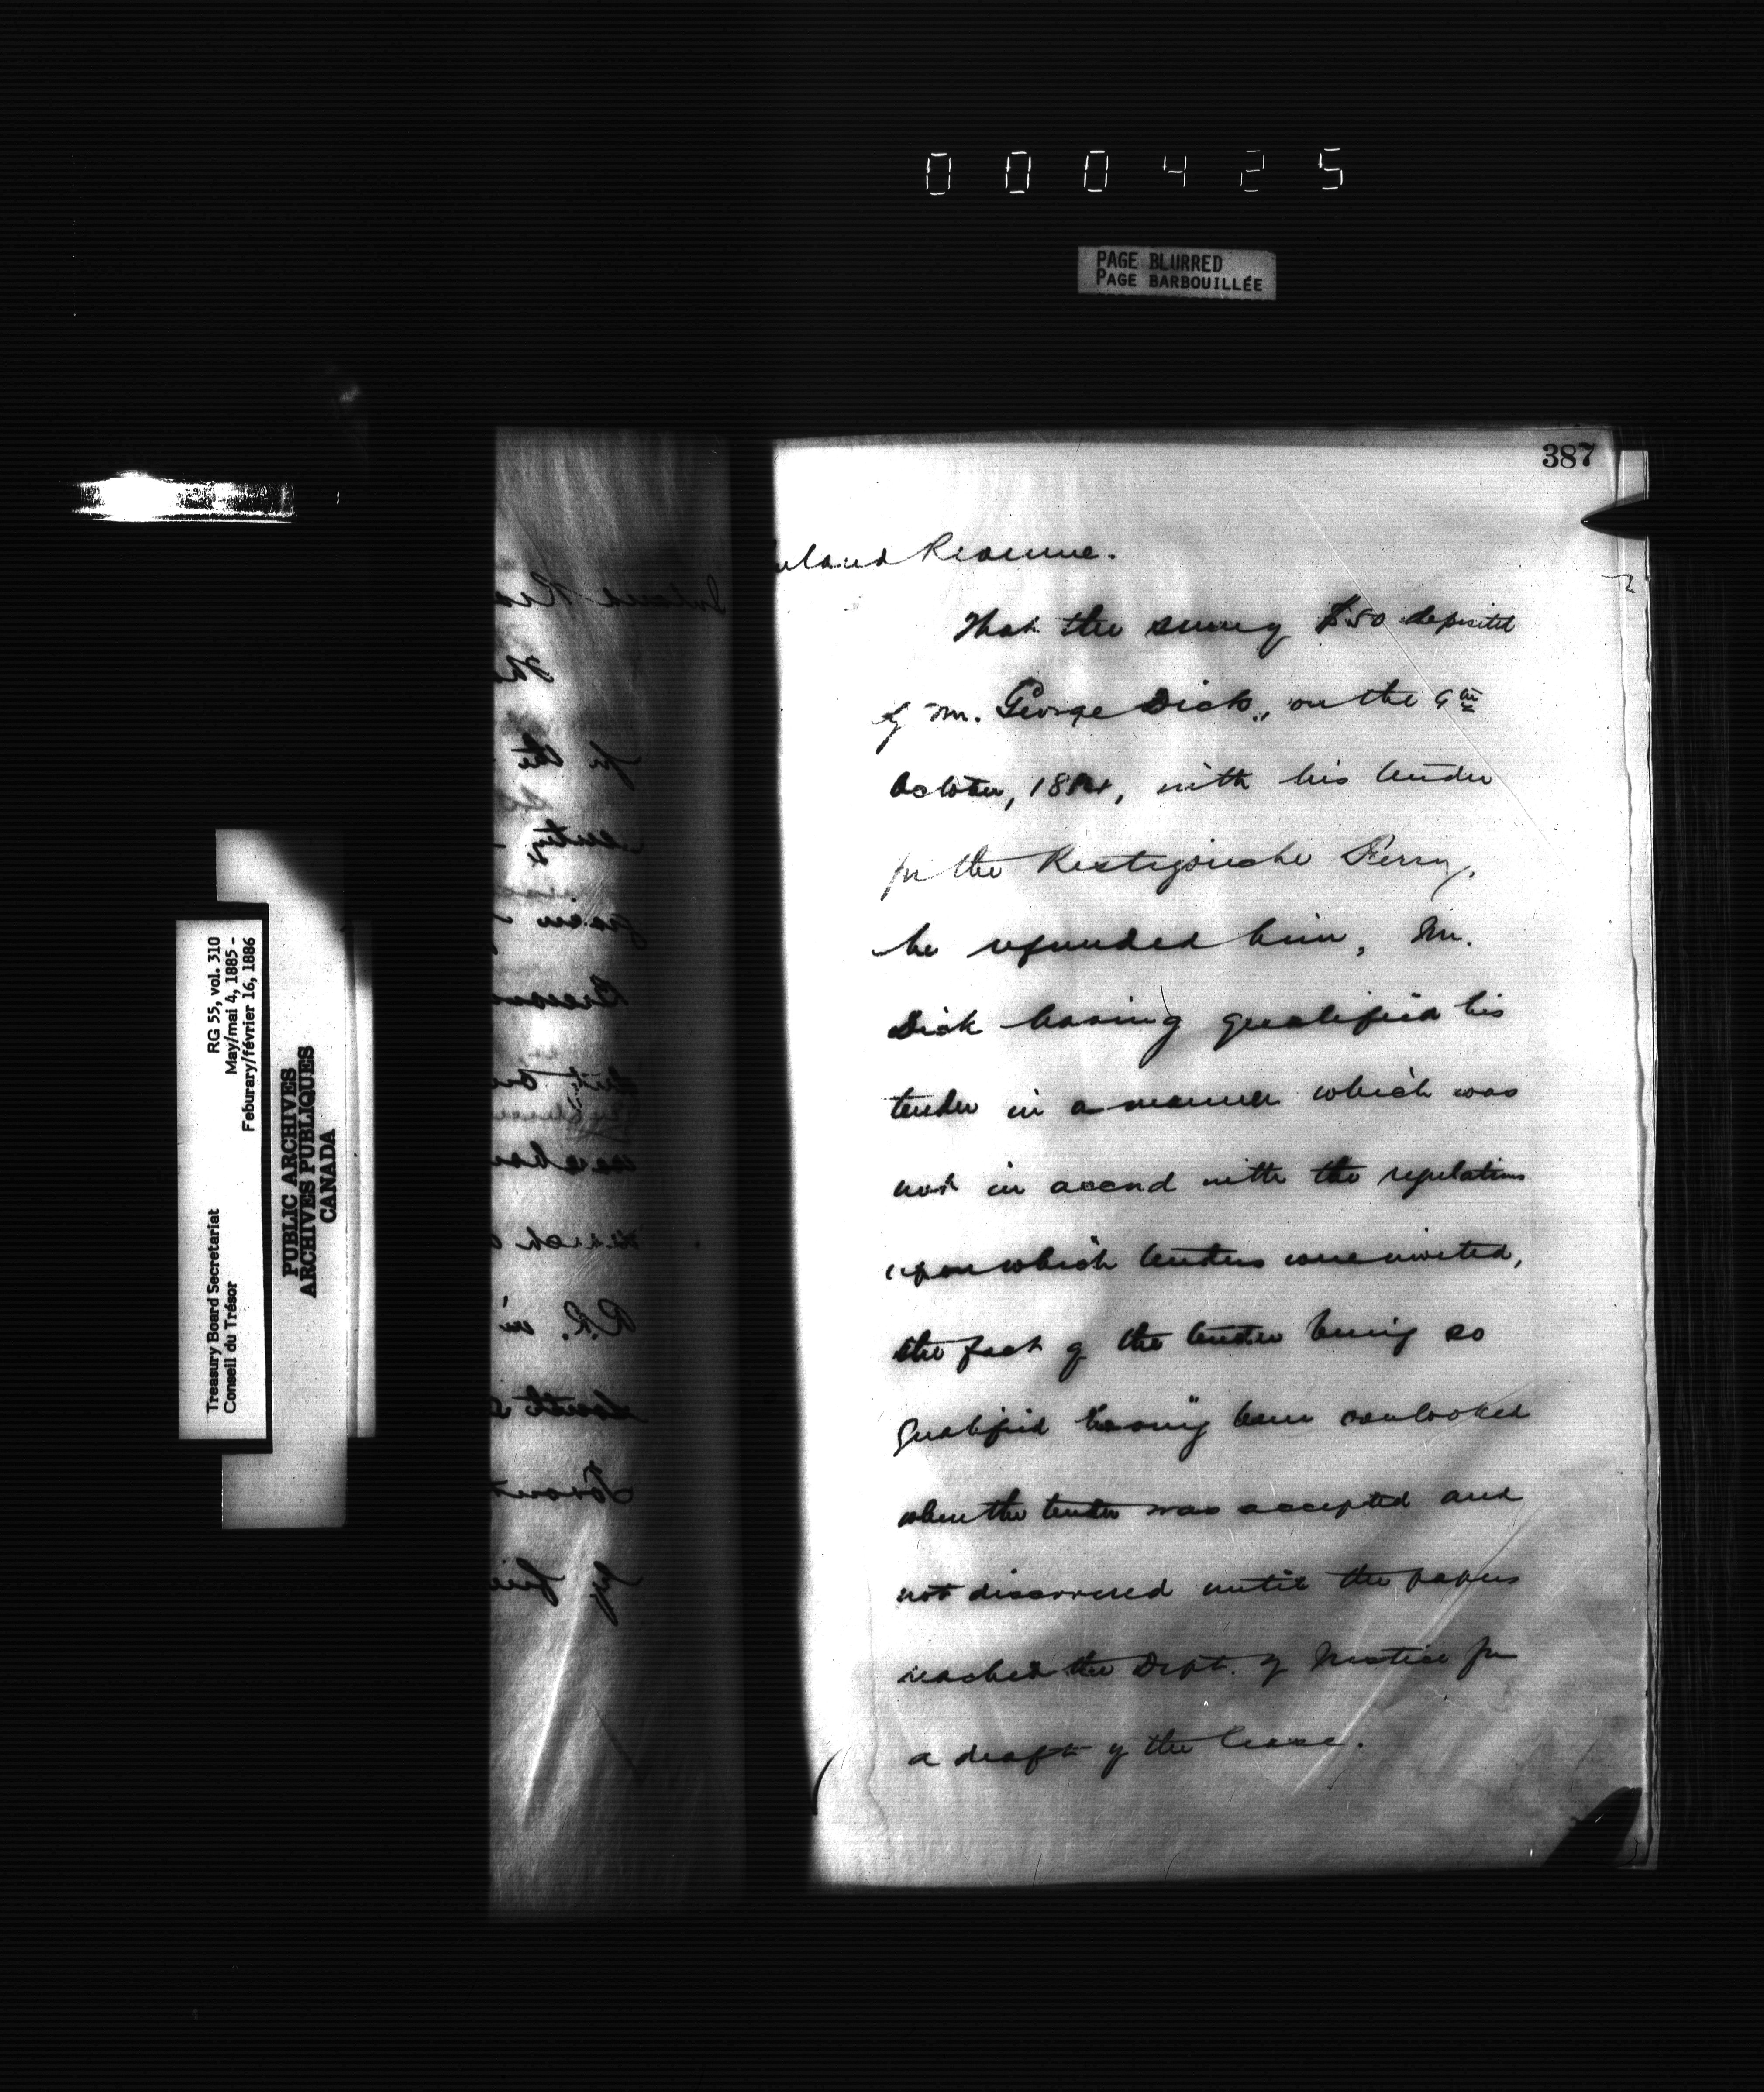 000425
PAGE BLURRED
PAGE BARBOUILLÉE
387
Inland Revenue.
That the sum of $50 deposited
by Mr. George Dick, on the 9th
October, 1884, with his tender
for the Restigouche Ferry,
be refunded him, Mr.
Dick having qualified his
tender in a manner which was
not in accord with the regulations
upon which tenders were invited,
the fact of the tender being so
qualified having been overlooked
when the tender was accepted and
not discovered until the papers
reached the Dept. of Justice for
a draft of the lease.
Treasury Board Secretariat
Conseil du Trésor
RG 55, vol. 310
May/mai 4, 1885 -
Feburary/février 16, 1886
PUBLIC ARCHIVES
ARCHIVES PUBLIQUES
CANADA